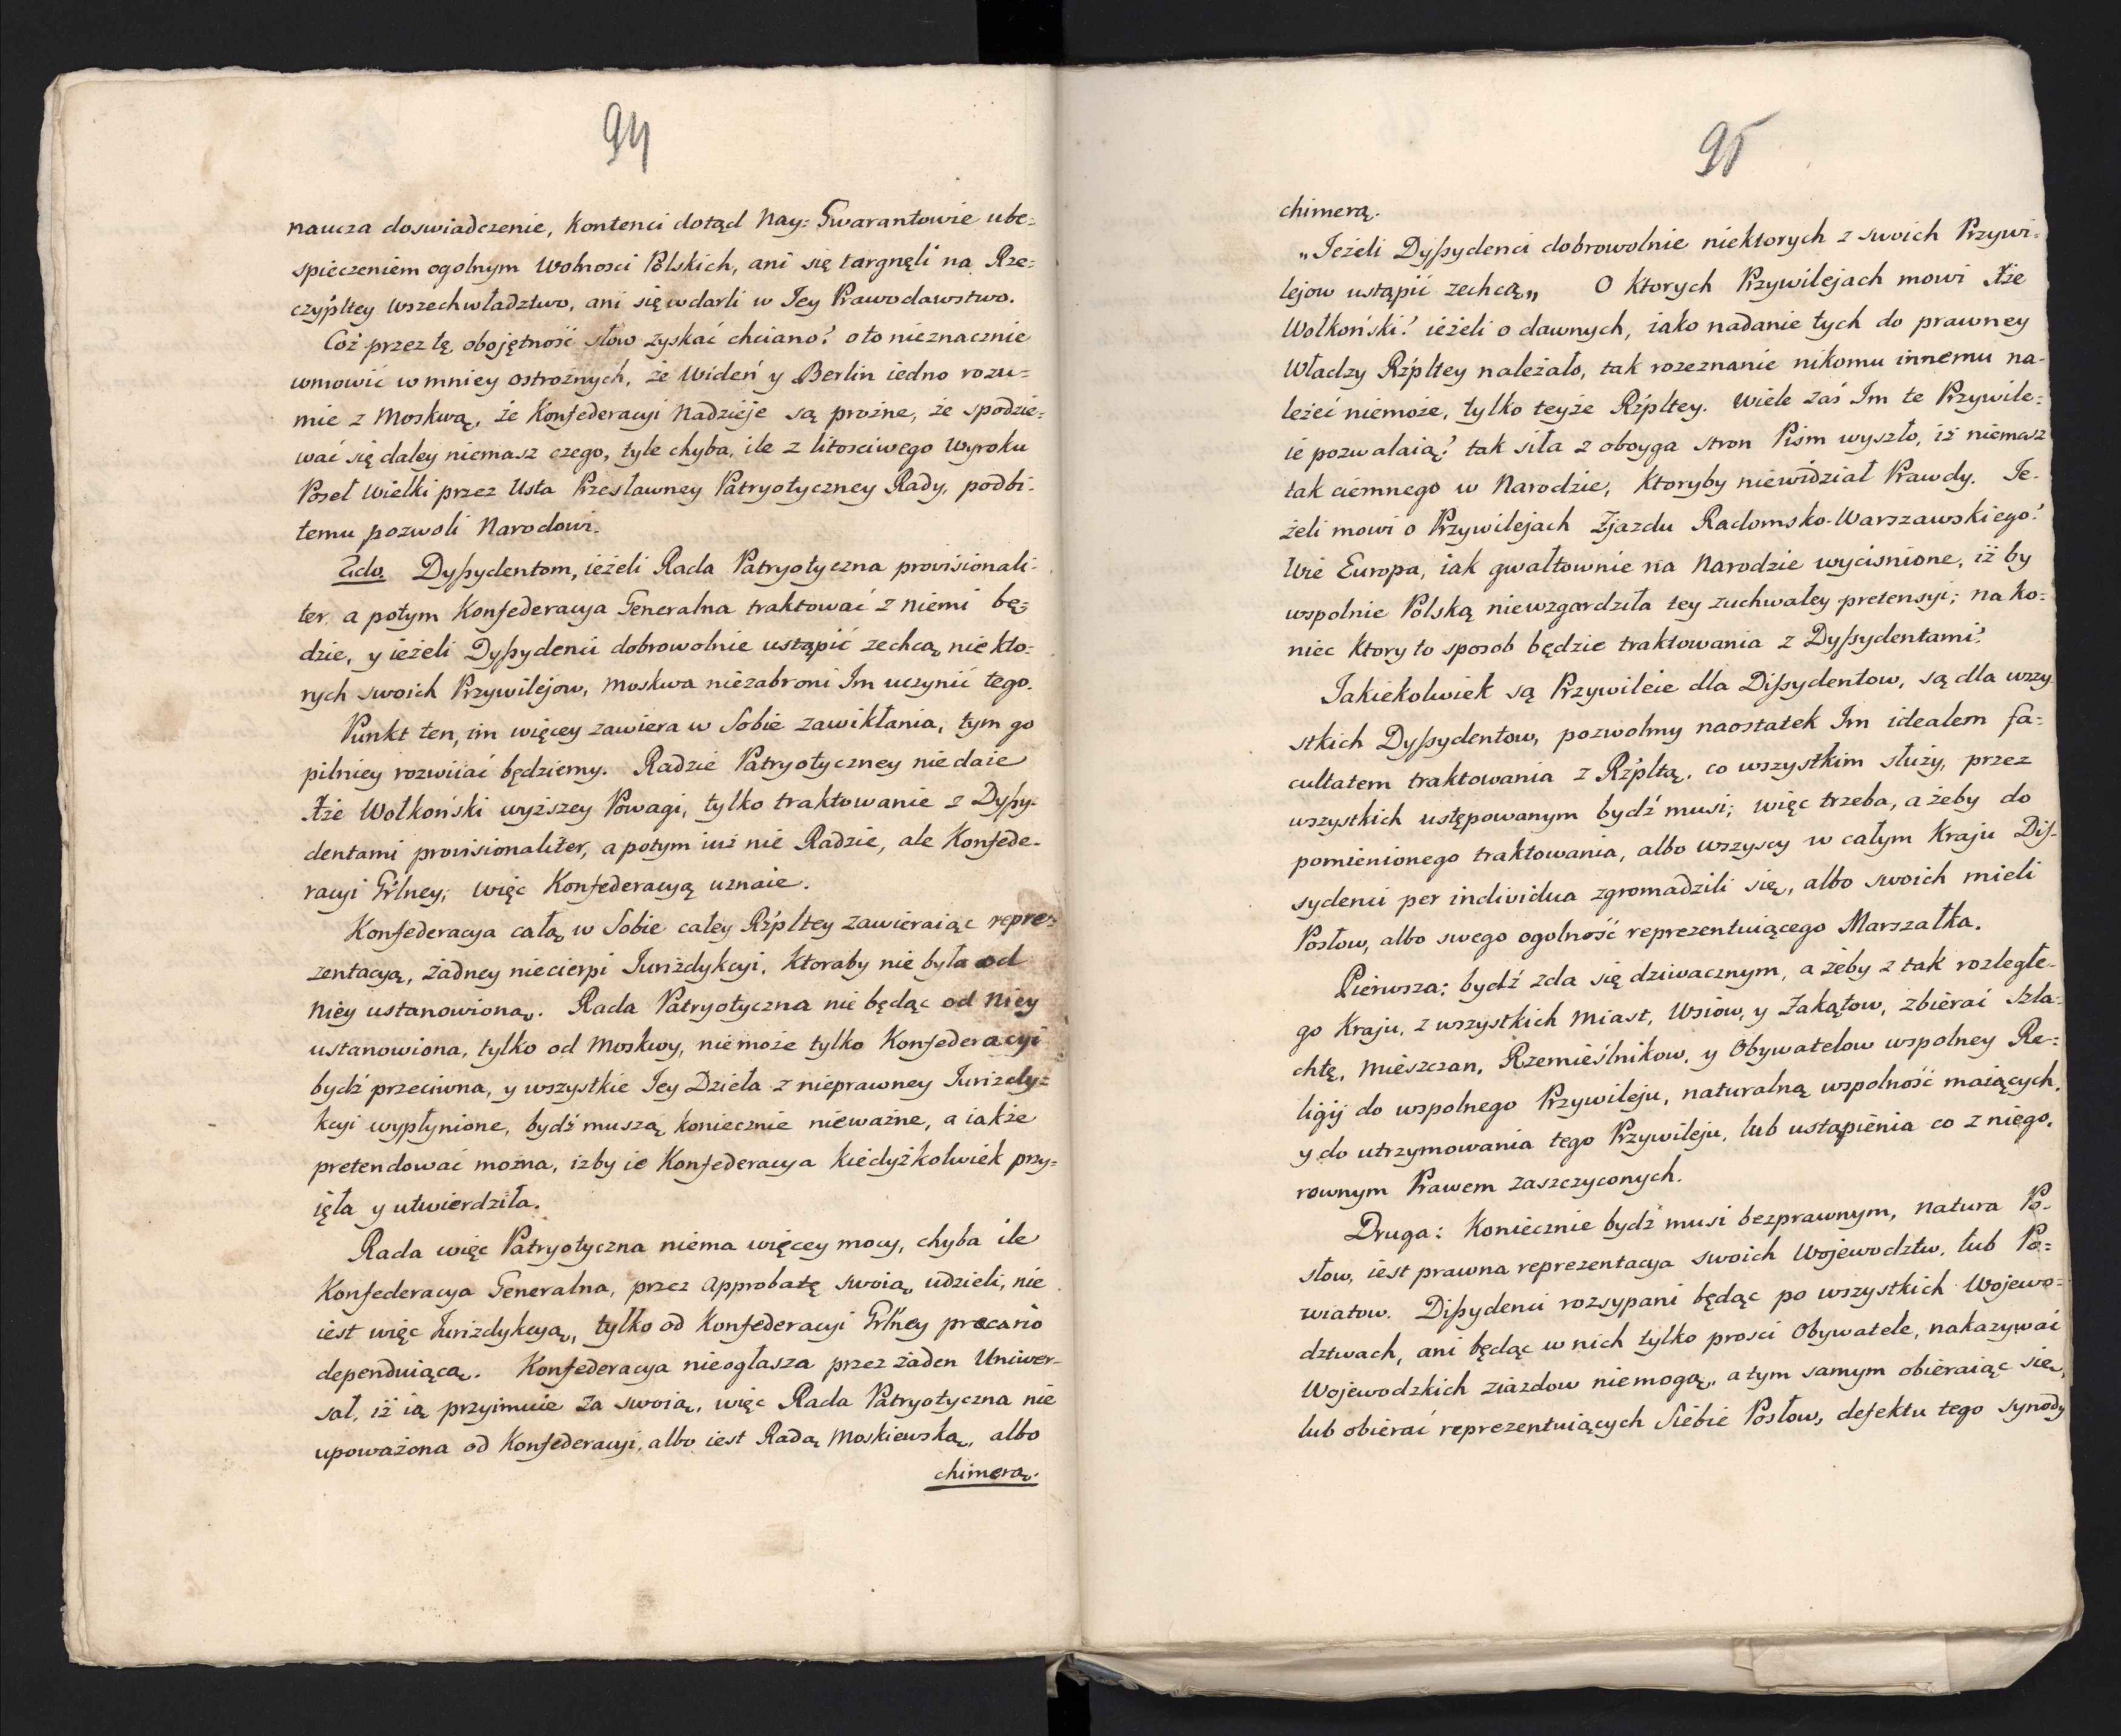 94
naucza doswiadczenie, kontenci dotąd Nay: Gwarantowie ube=
spieczeniem ogolnym Wolnosci Polskich, ani się targnęli na Rze=
czýpltey wszechwładztwo, ani się wdarli w Jey Prawodawstwo.
Cóż przez tę obojętność słów zyskać chciano? oto nieznacznie
wmowić w mniey ostrożnych, że Wideń y Berlin iedno rozu=
mie z Moskwą, że Konfederacyi Nadzieje są prożne, że spodzie=
wać się daley niemasz czego, tyle chyba, ile z litosciwego Wyroku
Poseł Wielki przez Usta Przesławney Patryotyczney Rady, podbi=
temu pozwoli Narodowi.
2do. Dyſsydentom, ieżeli Rada Patryotyczna provisionali=
ter, a potym Konfederacya Generalna traktować z niemi bę=
dzie, y ieżeli Dyſsydenci dobrowolnie ustąpić zechcą niekto=
rych swoich Przywilejow, Moskwa niezabroni Im uczynić tego.
Punkt ten, im więcey zawiera w Sobie zawikłania, tym go
pilniey rozwiiać będziemy. Radzie Patryotyczney nie daie
Xże Wołkoński wyższey Powagi, tylko traktowanie z Dyſsy-
dentami provisionaliter, a potym iuż nie Radzie, ale Konfede-
racyi Grlney; więc Konfederacyą uznaie.
Konfederacya całą w Sobie całey Rzpltey zawieraiąc repre=
zentacyą, żadney niecierpi Jurizdykcyi, ktoraby nie była od
Niey ustanowiona. Rada Patryotyczna nie będąc od Niey
ustanowiona, tylko od Moskwy, niemoże tylko Konfederacyi
bydź przeciwna, y wszystkie Jey Dzieła z nieprawney Jurizdy=
kcyi wypłynione, bydź muszą koniecznie nieważne, a iakże
pretendować można, iżby ie Konfederacya kiedyżkolwiek przy=
ięła y utwierdziła.
Rada więc Patryotyczna niema więcey mocy, chyba ile
Konfederacya Generalna, przez Approbatę swoią udzieli, nie
iest więc Jurizdykcyą, tylko od Konfederacyi Grlney precario
dependuiącą. Konfederacya nieogłasza przez żaden Uniwer-
sał, iż ią przyimuie za swoią, więc Rada Patryotyczna nie
upoważona od Konfederacyi, albo iest Radą Moskiewską, albo
chimerą.
95
chimerą.
„Jeżeli Dyſsydenci dobrowolnie niektorych z swoich Przywi=
lejow ustąpić zechcą„ O ktorych Przywilejach mowi Xże
Wołkoński? ieżeli o dawnych, iako nadanie tych do prawney
Władzy Rzpltey należało, tak rozeznanie nikomu innemu na-
leżeć niemoże, tylko teyże Rzpltey. Wiele zaś Im te Przywile=
ie pozwalaią? tak siła z oboyga stron Pism wyszło, iż niemasz
tak ciemnego w Narodzie, ktoryby niewidział Prawdy. Je-
żeli mowi o Przywilejach Zjazdu Radomsko-Warszawskiego?
Wie Europa, iak gwałtownie na Narodzie wycisnione, iż by
wspolnie Polską niewzgardziła tey zuchwałey pretensyi; na ko=
niec ktory to sposob będzie traktowania z Dyſsydentami?
Jakiekolwiek są Przywileie dla Diſsydentow, są dla wszy-
stkich Dyſsydentow, pozwolmy naostatek Im idealem fa=
cultatem traktowania z Rzpltą, co wszystkim służy, przez
wszystkich ustępowanym bydź musi; więc trzeba, ażeby do
pomienionego traktowania, albo wszyscy w całym Kraju Diſ-
sydenci per individua zgromadzili się, albo swoich mieli
Posłow, albo swego ogolność reprezentuiącego Marszałka.
Pierwsza: bydź zda się dziwacznym, ażeby z tak rozległe-
go Kraju, z wszystkich Miast, Wsiow, y Zakątow, zbierać Szla=
chtę, Mieszczan, Rzemieślnikow, y Obywatelow wspolney Re=
ligij do wspolnego Przywileju, naturalną wspolność maiących,
y do utrzymowania tego Przywileju, lub ustąpienia co z niego,
rownym Prawem zaszczyconych.
Druga: Koniecznie bydź musi bezprawnym, natura Po-
słow, iest prawna reprezentacya swoich Wojewodztw, lub Po=
wiatow. Diſsydenci rozsypani będąc po wszystkich Wojewo=
dztwach, ani będąc w nich tylko prosci Obywatele, nakazywać
Wojewodzkich ziazdow niemogą, a tym samym obieraiąc się,
lub obierać reprezentuiących Siebie Posłow, defektu tego Synody